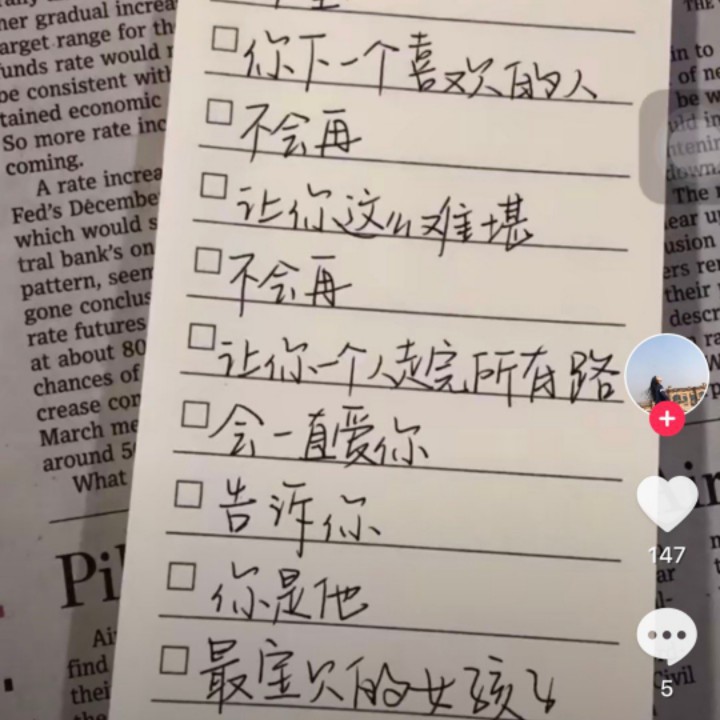 her gradual increa
arget range for the
funds rate would
be consistent with
tained economic
So more rate inc
coming.
A rate increa
Fed's Decembe
which would s
tral bank's on
pattern, seem
gone conclus
rate futures
at about 80
chances of
crease con
March me
around 5
What
Pi
Ai
find
thei
你下一个喜欢的人
不会再
让你这么难堪
不会再
让你一个人走完所有路
会一直爱你
告诉你
你是他
最宝贝的女孩子
in to
of ne
be w
The
ear u
usion
ers re
their
descr
147
5
Civil